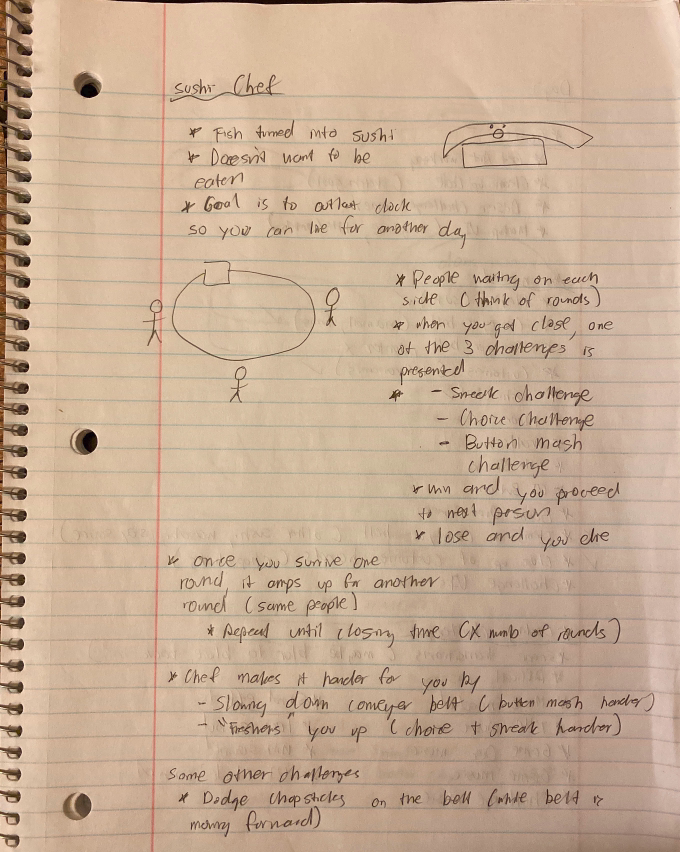 Sushi Chef
* Fish turned into sushi
* Doesn't want to be
eaten
* Goal is to outlast clock
so you can live for another day
* People waiting on each
side (think of rounds)
* when you get close, one
of the 3 challenges is
presented
* - Sneak challenge
- Choice challenge
- Button mash
challenge
* win and you proceed
to next person
* lose and you die
* once you survive one
round, it amps up for another
round (same people)
* Repeat until closing time (X numb of rounds)
* Chef makes it harder for you by
- Slowing down conveyer belt (button mash harder)
- "Freshens" you up (choice + sneak harder)
Some other challenges
* Dodge chopsticks on the belt (while belt is
moving forward)